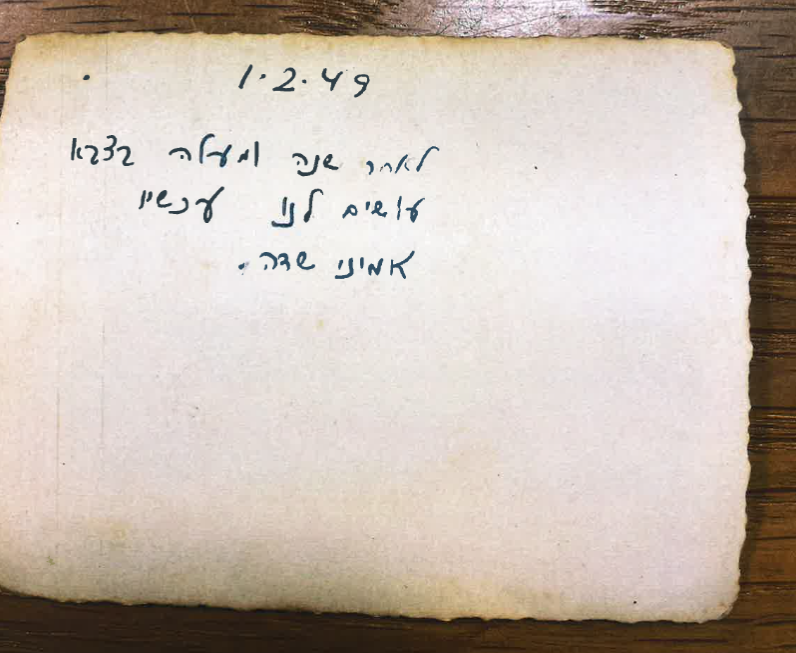 1.2.49
לאחר שנה ומעלה בצבא
עושים לנו עכשיו
אמיני שדה.